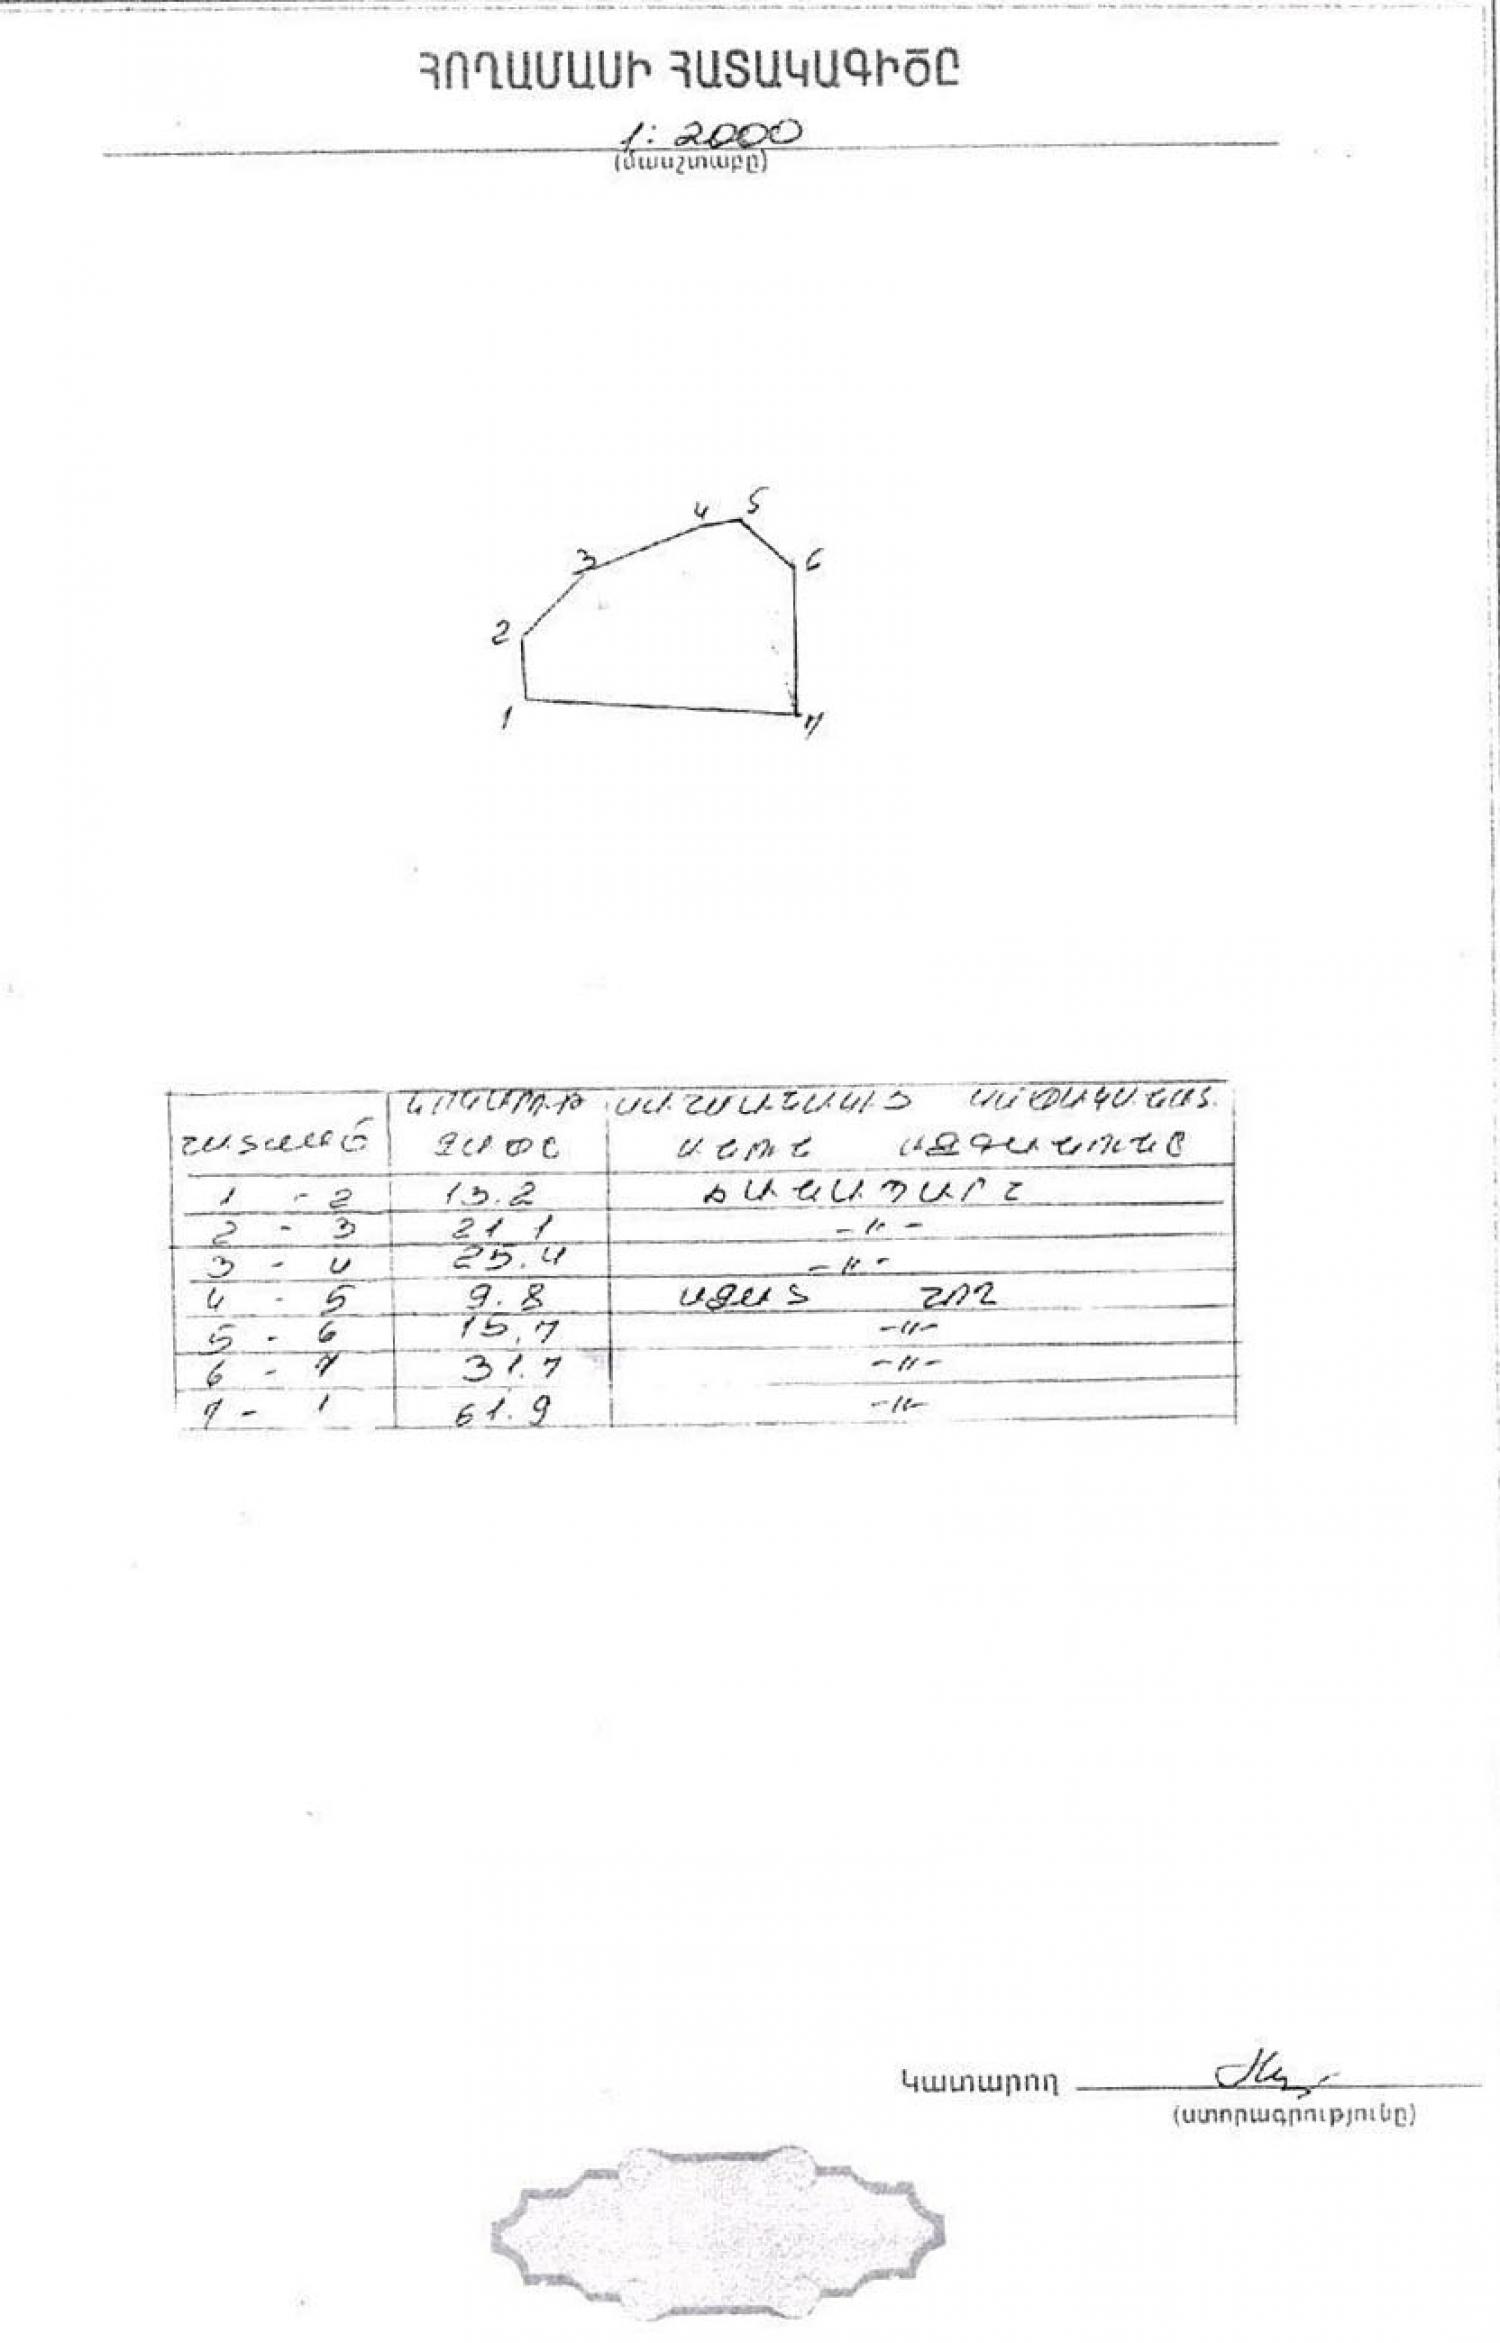 ՀՈՂԱՄԱՍԻ ՀԱՏԱԿԱԳԻԾԸ
1:2000
(մասշտաբը)
4 5
3 6
2
1 7
ՍԱՀՄԱՆԱԿԻՑ
ՀԱՏՎԱԾ ՉԱՓԸ ԱՆՈՒՆ ԱԶԳԱՆՈՒՆԸ
1 - 2 13.2 ՃԱՆԱՊԱՐՀ
2 - 3 21.1 -〃-
3 - 4 25.4 -〃-
4 - 5 9.8 ԱԶԱՏ ՀՈՂ
5 - 6 15.7 -〃-
6 - 7 31.7 -〃-
7 - 1 61.9 -〃-
Կատարող
(ստորագրությունը)